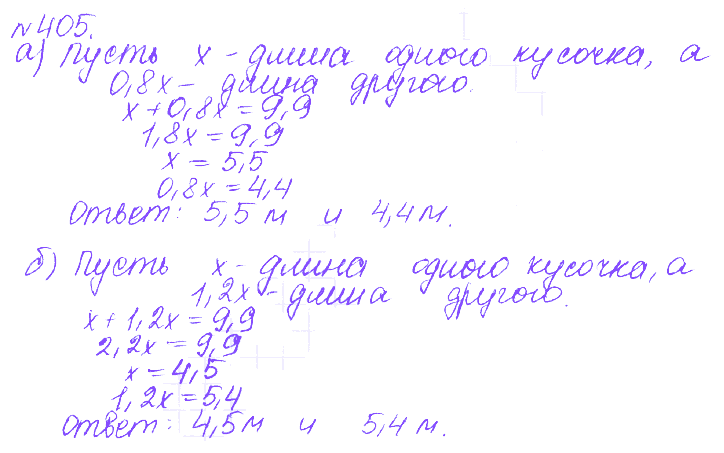 №405.
а) Пусть x - длина одного кусочка, а
0,8x - длина другого.
x+0,8x=9,9
1,8x=9,9
x=5,5
0,8x=4,4
Ответ: 5,5 м и 4,4 м.
б) Пусть x - длина одного кусочка, а
1,2x - длина другого.
x+1,2x=9,9
2,2x=9,9
x=4,5
1,2x=5,4
Ответ: 4,5 м и 5,4 м.